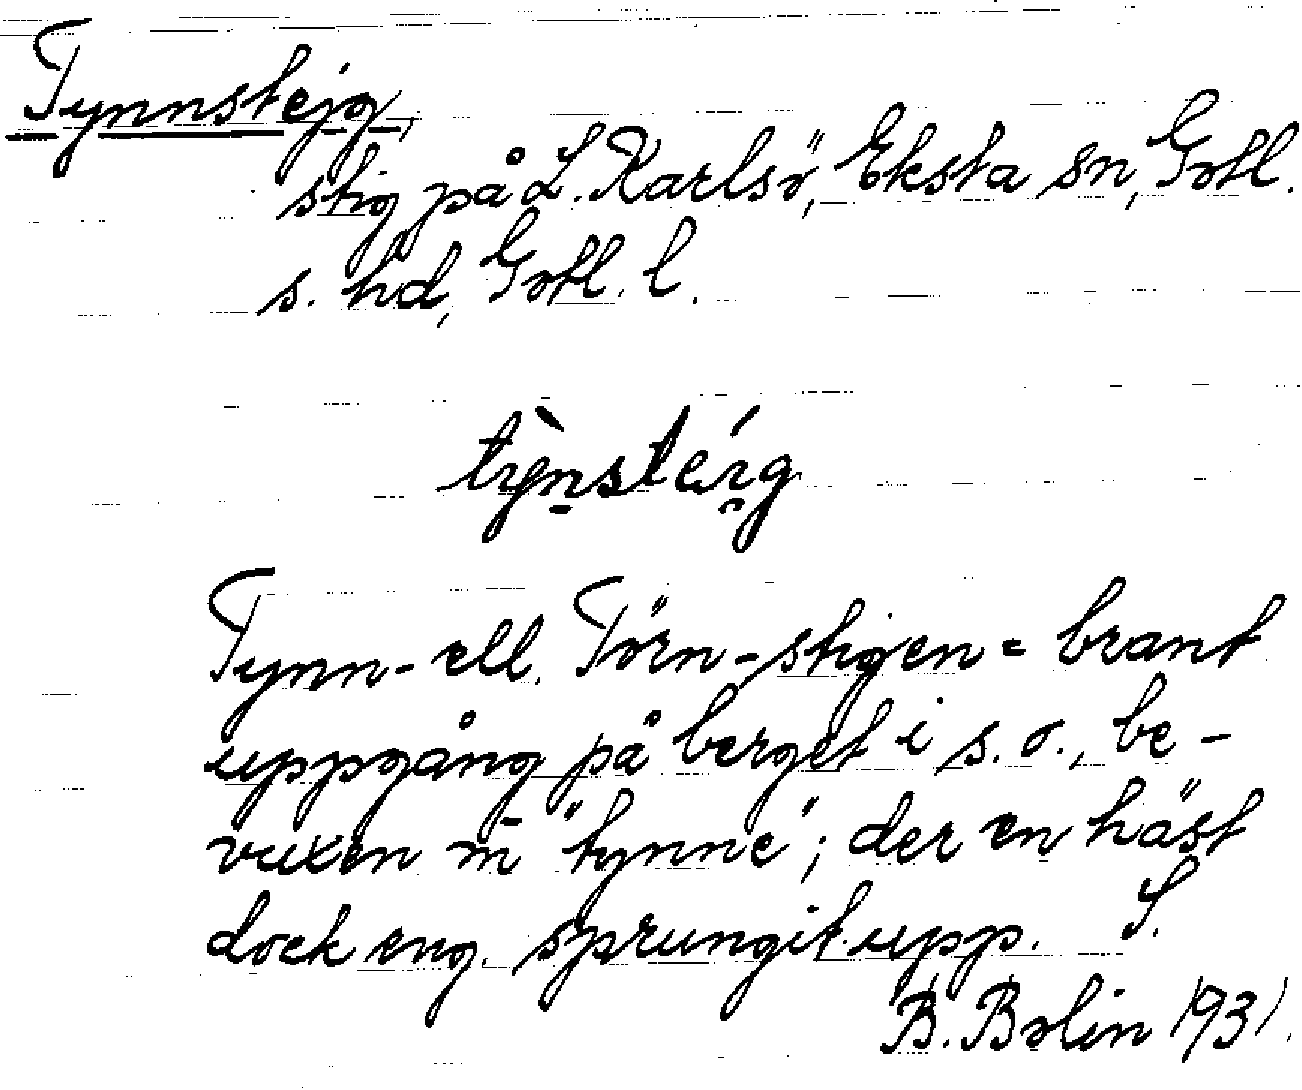 Tynnstejg,
stig på L. Karlsö, Eksta sn, Gotl.
s. hd, Gotl. l.
tỳnsteíg
Tynn- ell. Törn-stigen = brant
uppgång på berget i s. o., be-
vuxen m̄ "tynne"; der en häst
dock eng. sprungit upp. S.
B. Bolin 1931.